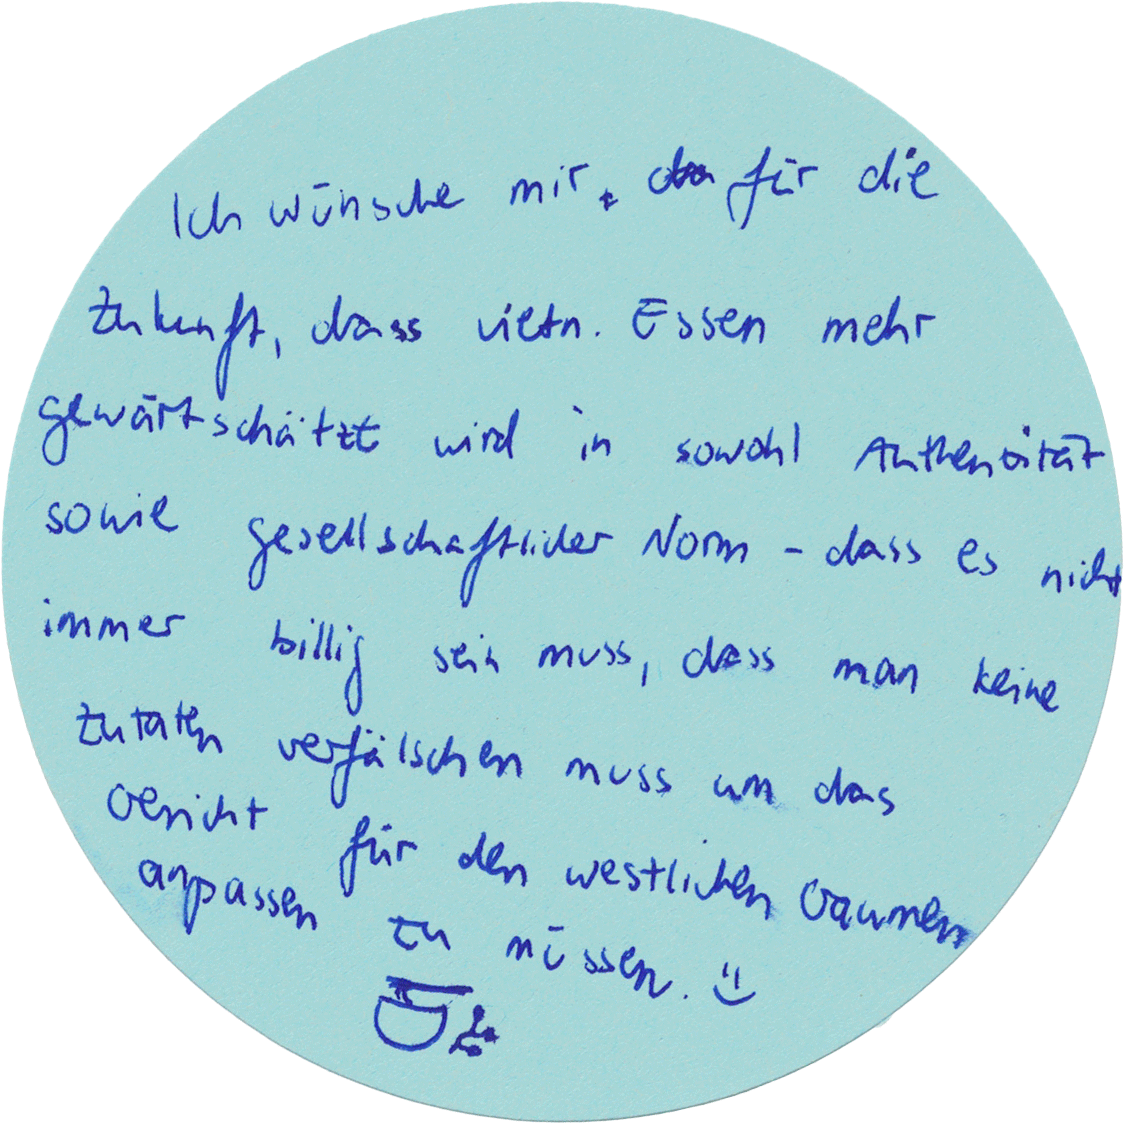 Ich wünsche mir, für die
Zukunft, dass vietn. Essen mehr
gewärtschätzt wird in sowohl Authenzität
sowie gesellschaftlicher Norm - dass es nicht
immer billig sein muss, dass man keine
Zutaten verfälschen muss um das
Gericht für den westlichen Gaumen
anpassen zu müssen. :)